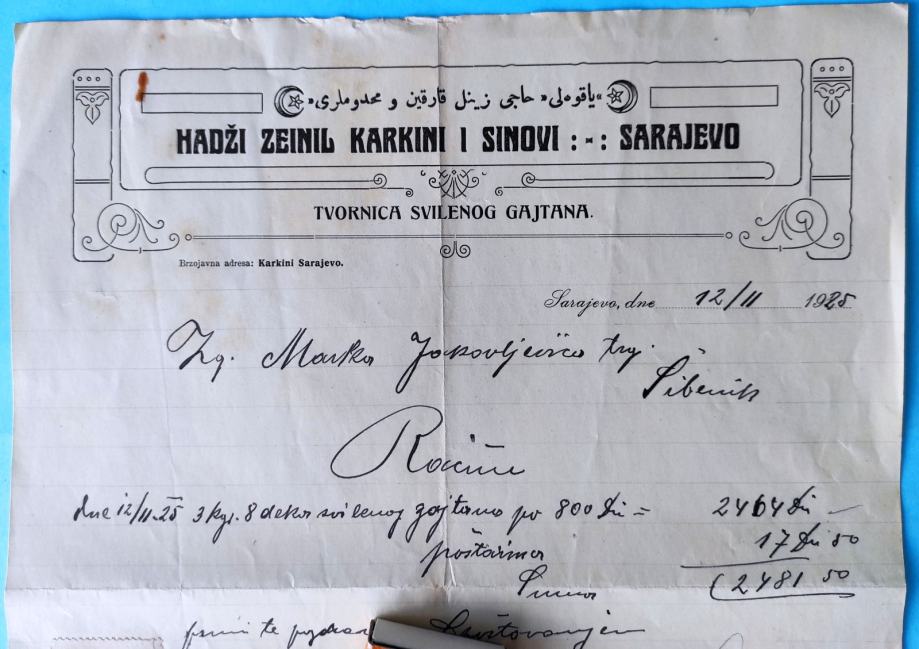 »ياقوه‌لى« حاجى زينل قارقين و محدوملرى«
HADŽI ZEINIL KARKINI I SINOVI :-: SARAJEVO
TVORNICA SVILENOG GAJTANA.
Brzojavna adresa: Karkini Sarajevo.
Sarajevo, dne 12/11 1925
Marka Jakovljevića trg.
Šibenik
Račun
dne 12/11.25 3 kgr. 8 deka svilenog gajtana po 800 Din = 2464 Din –
poštarina 17 Din 50
Suma 2481 50
primite pozdrav Sa štovanjem